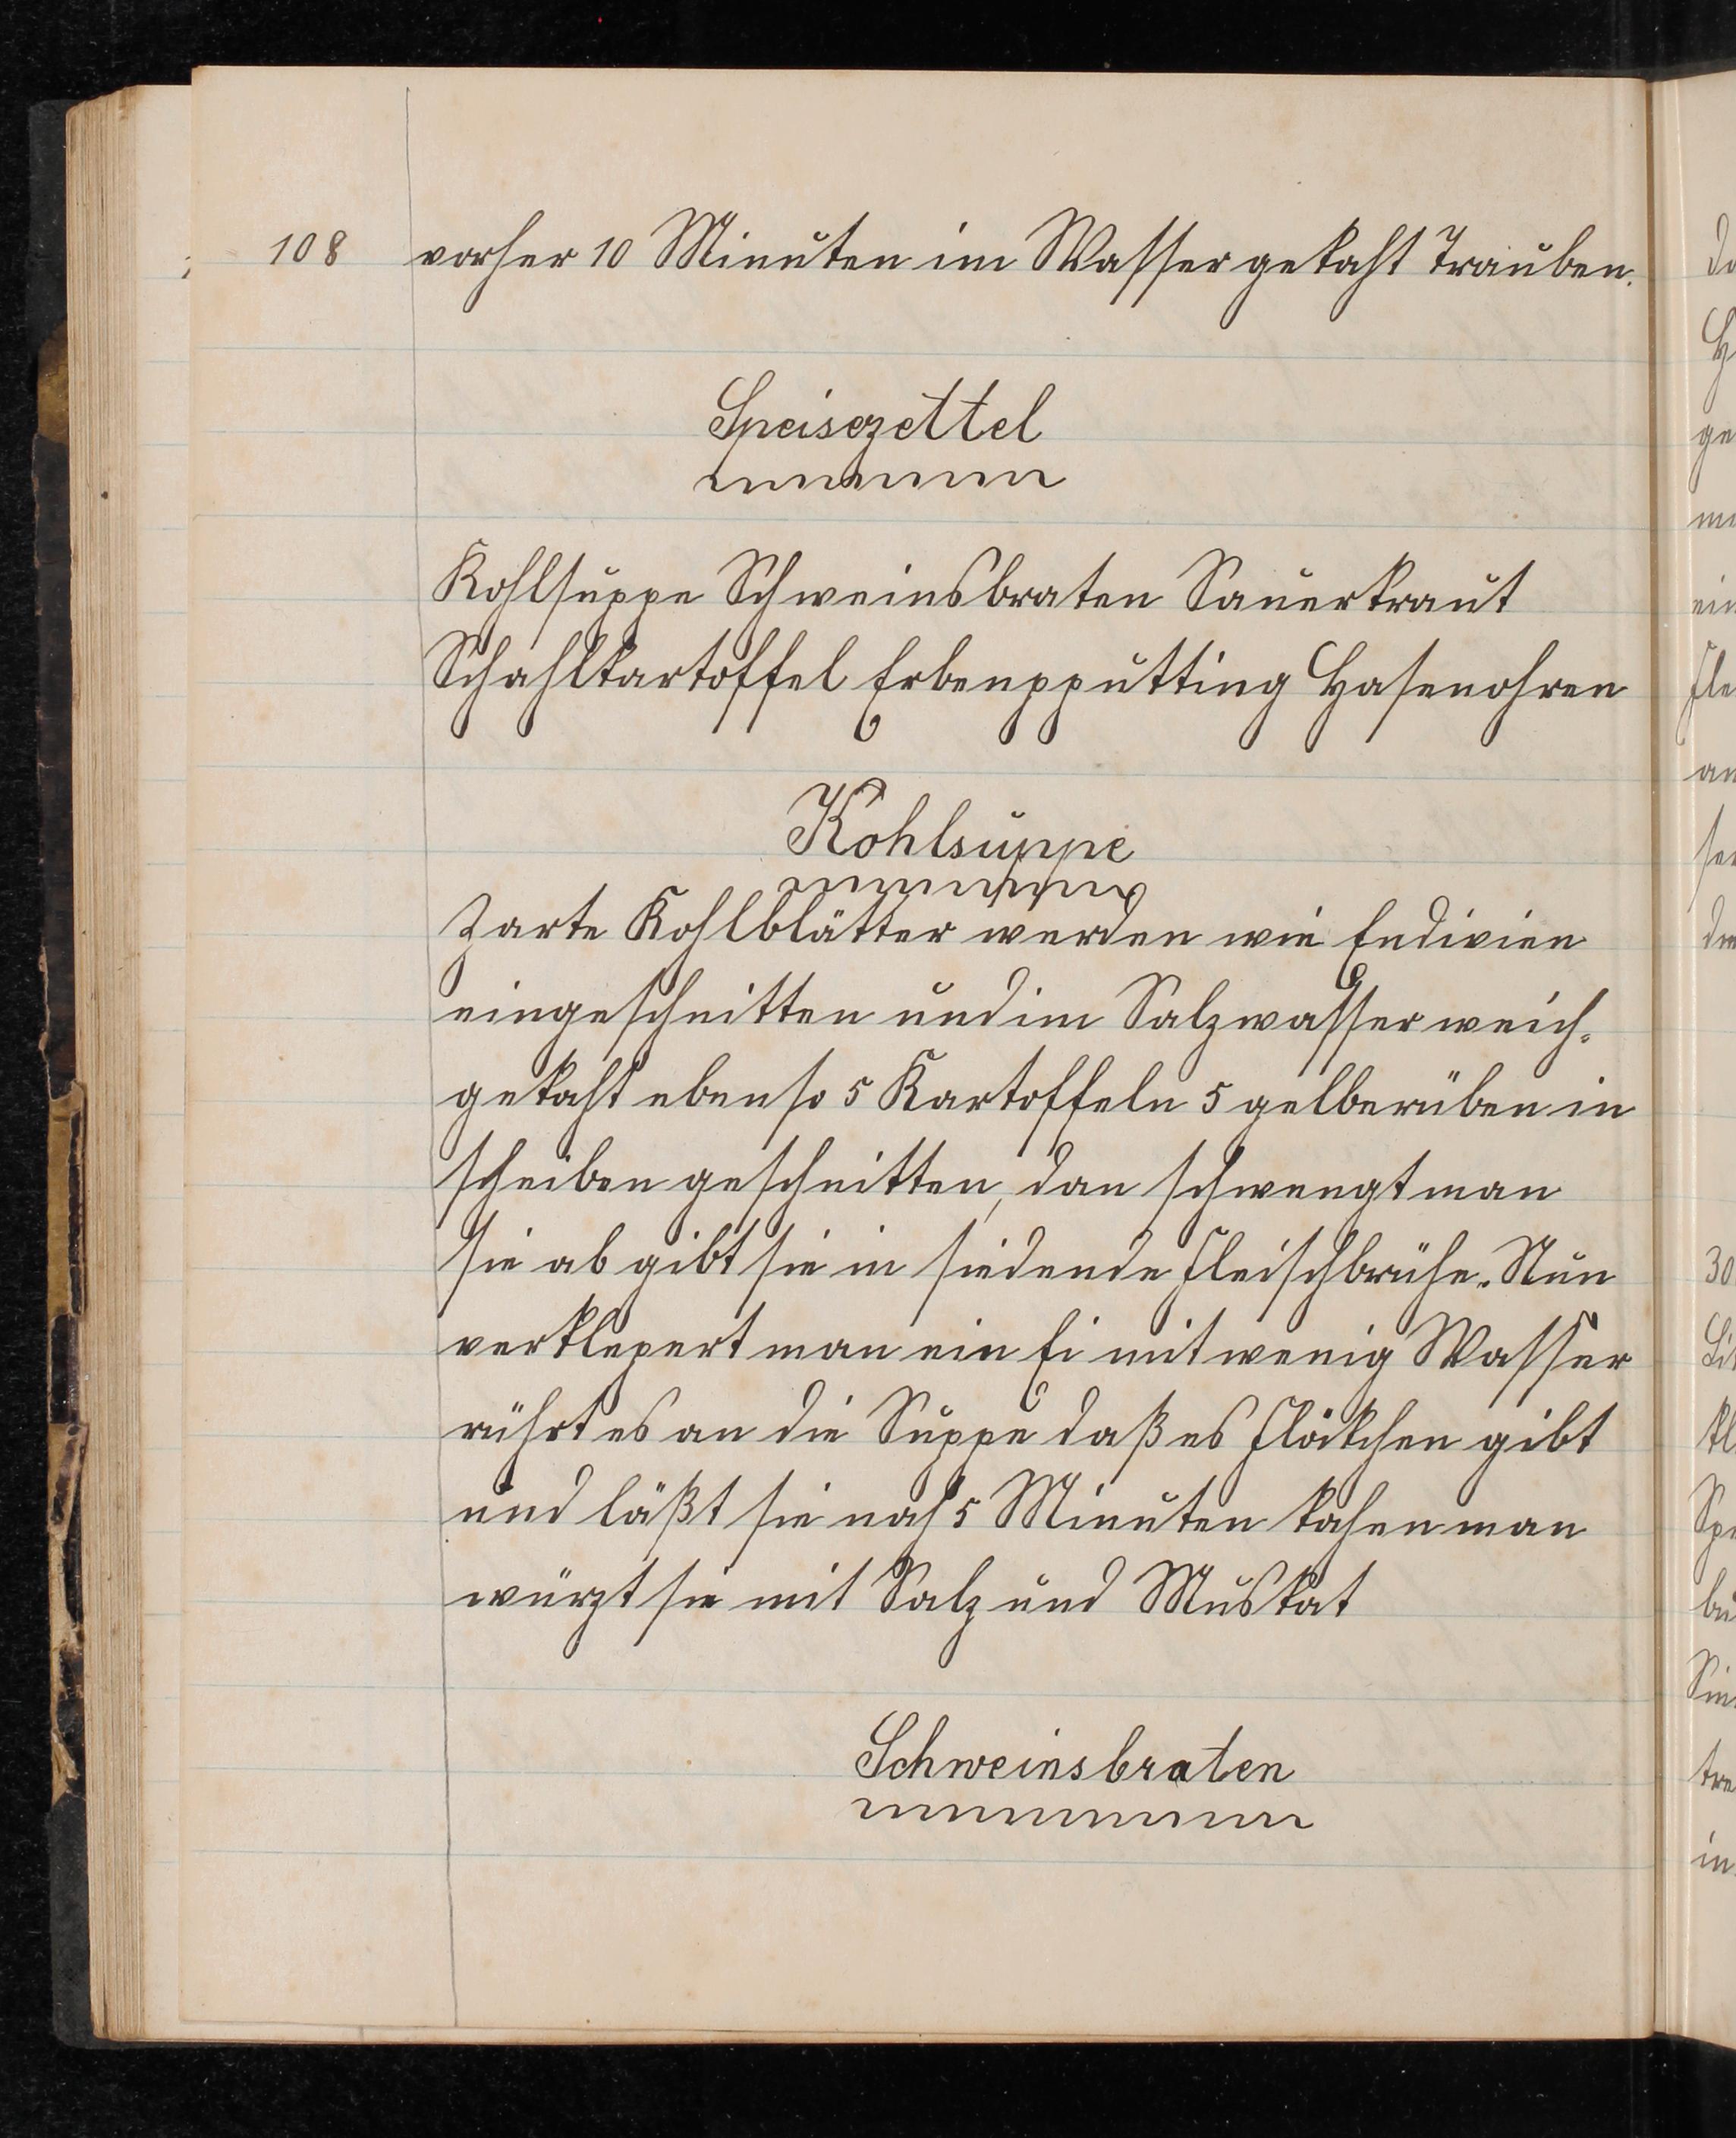 108 vorher 10 Minuten im Wasser gekaht Trauben.
Speisezettel
Kohlsuppe Schweinsbraten Sauerkraut
Schahlkartoffel Erbenpputting Hasenohren
Kohlsuppe
Zarte Kohlblätter werden wie Endivien
eingeschnitten und im Salzwasser weich-
gekaht ebenso 5 Kartoffeln 5 gelberüben in
scheiben geschnitten, dan schwengt man
sie ab gibt sie in siedende Fleischbrühe. Nun
verklepert man ein Ei mit wenig Wasser
rührt es an die Suppe daß es Flökchen gibt
und läßt sie nah 5 Minuten kahen man
würzt sie mit Salz und Muskat
Schweinsbraten